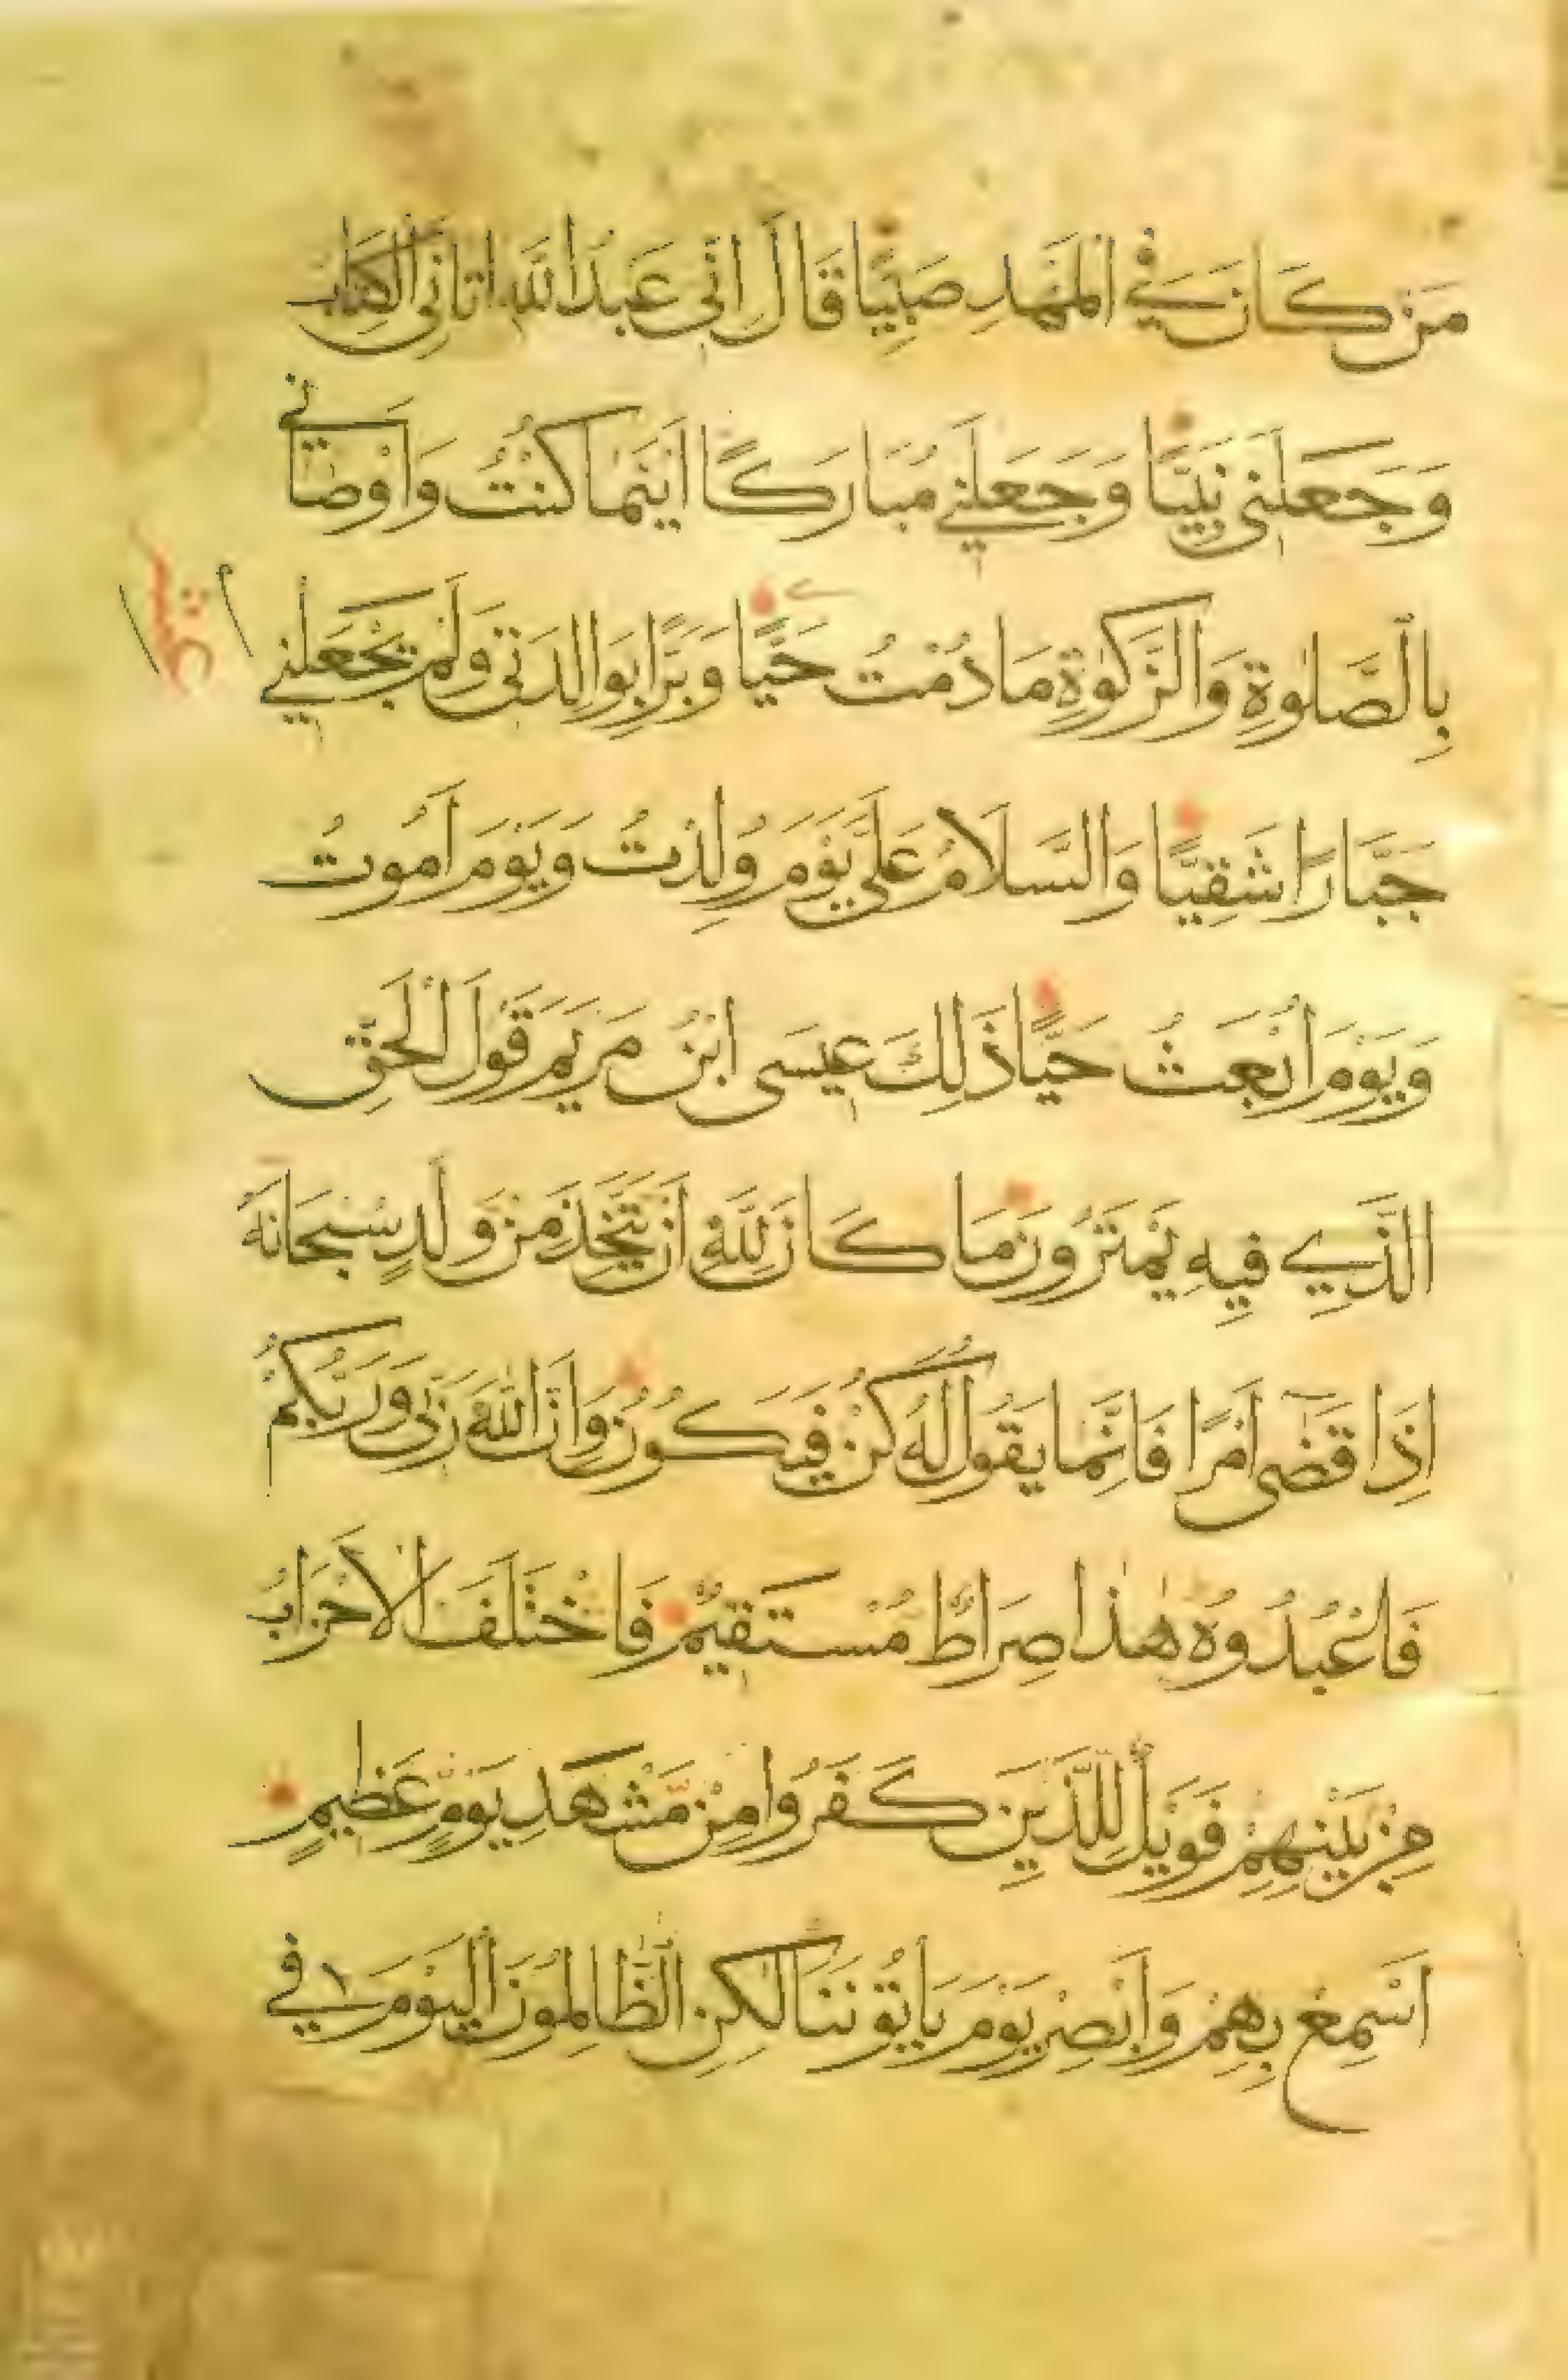 مَنْ كَانَ فِي الْمَهْدِ صَبِيًّا قَالَ اِنّى عَبْدُ اللهِ اتَانِيَ الْكِتَابَ
وَجَعَلَنى نَبِيًّا وَجَعَلَنِي مُبَارَكًا اَيْنَمَا كُنْتُ وَاَوْصَانِي
بِالصَّلوٰةِ وَالزَّكوٰةِ مَا دُمْتُ حَيًّا وَبَرًّا بِوَالِدَتى وَلَمْ يَجْعَلْنِي
جَبَّارًا شَقِيًّا وَالسَّلَامُ عَلَيَّ يَوْمَ وُلِدْتُ وَيَوْمَ اَمُوتُ
وَيَوْمَ اُبْعَثُ حَيًّا ذَلِكَ عِيسَى ابْنُ مَرْيَمَ قَوْلَ الْحَقِّ
الَّذِي فِيهِ يَمْتَرُونَ مَا كَانَ لِلّٰهِ اَنْ يَتَّخِذَ مِنْ وَلَدٍ سُبْحَانَهُ
اِذَا قَضٰى اَمْرًا فَاِنَّمَا يَقُولُ لَهُ كُنْ فَيَكُونُ وَاِنَّ اللّٰهَ رَبّى وَرَبُّكُمْ
فَاعْبُدُوهُ هٰذَا صِرَاطٌ مُسْتَقِيمٌ فَاخْتَلَفَ الْاَحْزَابُ
مِنْ بَيْنِهِمْ فَوَيْلٌ لِلَّذِينَ كَفَرُوا مِنْ مَّشْهَدِ يَوْمٍ عَظِيمٍ
اَسْمِعْ بِهِمْ وَاَبْصِرْ يَوْمَ يَاْتُونَنَا لٰكِنِ الظَّالِمُونَ الْيَوْمَ فِي